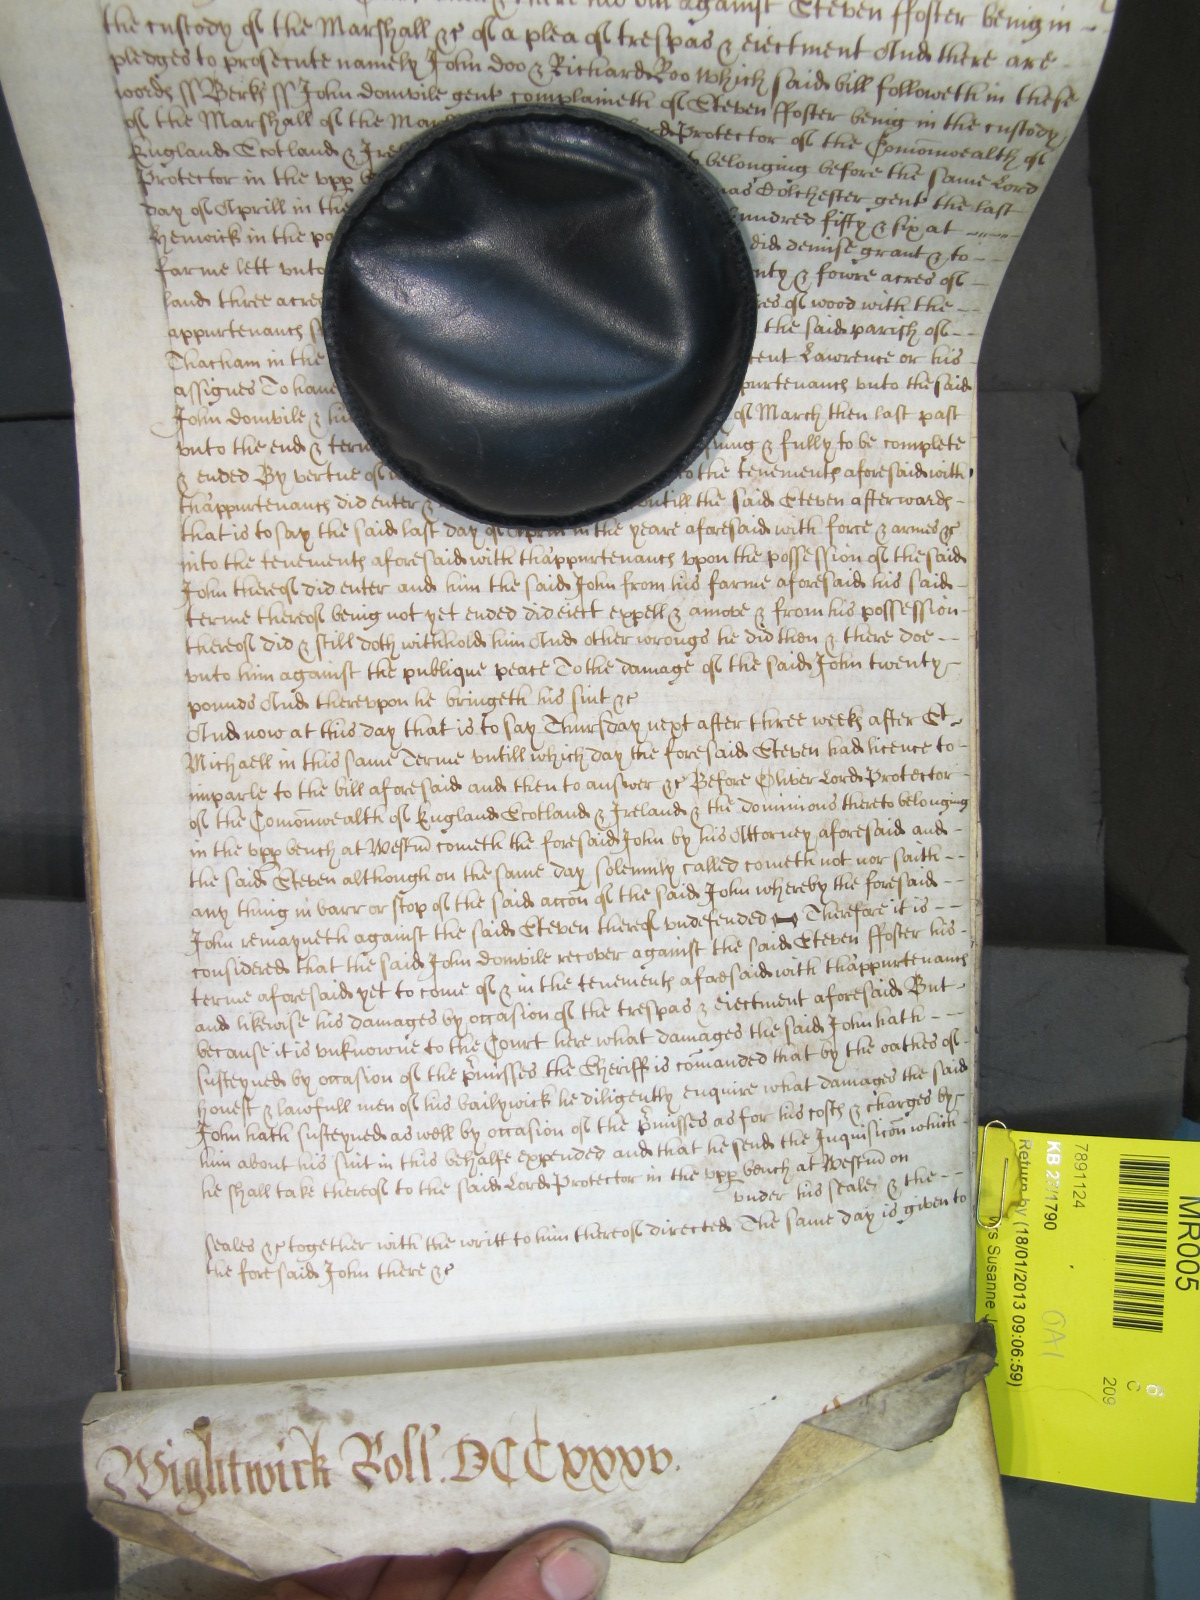 against Steven ffoster being in
the custody of the Marshall &c of a plea of trespas & eiectment And there are
pledges to prosecute namely John Doo & Richard Roo Which said bill followeth in these
words ss Berks ss John domvile gent complaineth of Steven ffoster being in the custody
of the Marshall of the Mar Lord Protector of the Comonwealth of
England Scotland & Ire belonging before the same Lord
Protector in the vpp b mas Dolchester gent the last
day of Aprill in the hundred fifty & six at
Henwick in the pa did demise grant & to
farme lett vnto nty & fowre acres of
land three acres res of wood with the
appurtenancs the said parish of
Thatcham in the cent Lawrence or his
assignes To haue purtenancs vnto the said
John domvile & hi of March then last past
vnto the end & term uing & fully to be complete
& ended By vertue of to the tenements aforesaid with
thappurtenancs did enter & vntill the said Steven afterwards
that is to say the said last day of Aprill in the yeare aforesaid with force & armes &c
into the tenements aforesaid with thappurtenancs vpon the possession of the said
John thereof did enter and him the said John from his farme aforesaid his said
terme thereof being not yet ended did eiect expell & amove & from his possession
thereof did & still doth withhold him And other wrongs he did then & there doe
vnto him against the publique peace To the damage of the said John twenty
pounds And therevpon he bringeth his suit &c
And now at this day that is to say Thursday next after three weeks after St
Michaell in this same Terme vntill which day the foresaid Steven had licence to
imparle to the bill aforesaid and then to answer &c Before Oliver Lord Protector
of the Comonwealth of England Scotland & Ireland & the dominions thereto belonging
in the vpp bench at Westm cometh the foresaid John by his Attorney aforesaid and
the said Steven although on the same day solemnly called cometh not nor saith
any thing in barr or stop of the said accon of the said John whereby the foresaid
John remayneth against the said Steven thereof vndefended Therefore it is
considered that the said John domvile recover against the said Steven ffoster his
terme aforesaid yet to come of & in the tenements aforesaid with thappurtenancs
and likewise his damages by occasion of the trespas & eiectment aforesaid But
because it is vnknowne to the Court here what damages the said John hath
susteyned by occasion of the pmisses the Sheriff is comanded that by the oathes of
honest & lawfull men of his bailywick he diligently enquire what damages the said
John hath susteyned as well by occasion of the pmisses as for his costs & charges by
him about his suit in this behalfe expended and that he send the Inquisicon which
he shall take thereof to the said Lord Protector in the vpp bench at Westm on
vnder his seale & the
seales &c together with the writt to him thereof directed The same day is given to
the foresaid John there &c
Wightwick Roll. DCCxxxv.
MR005
7891124
KB 27/1790
Return by (18/01/2013 09:06:59)
rs Susanne J
OA1
6
C
209